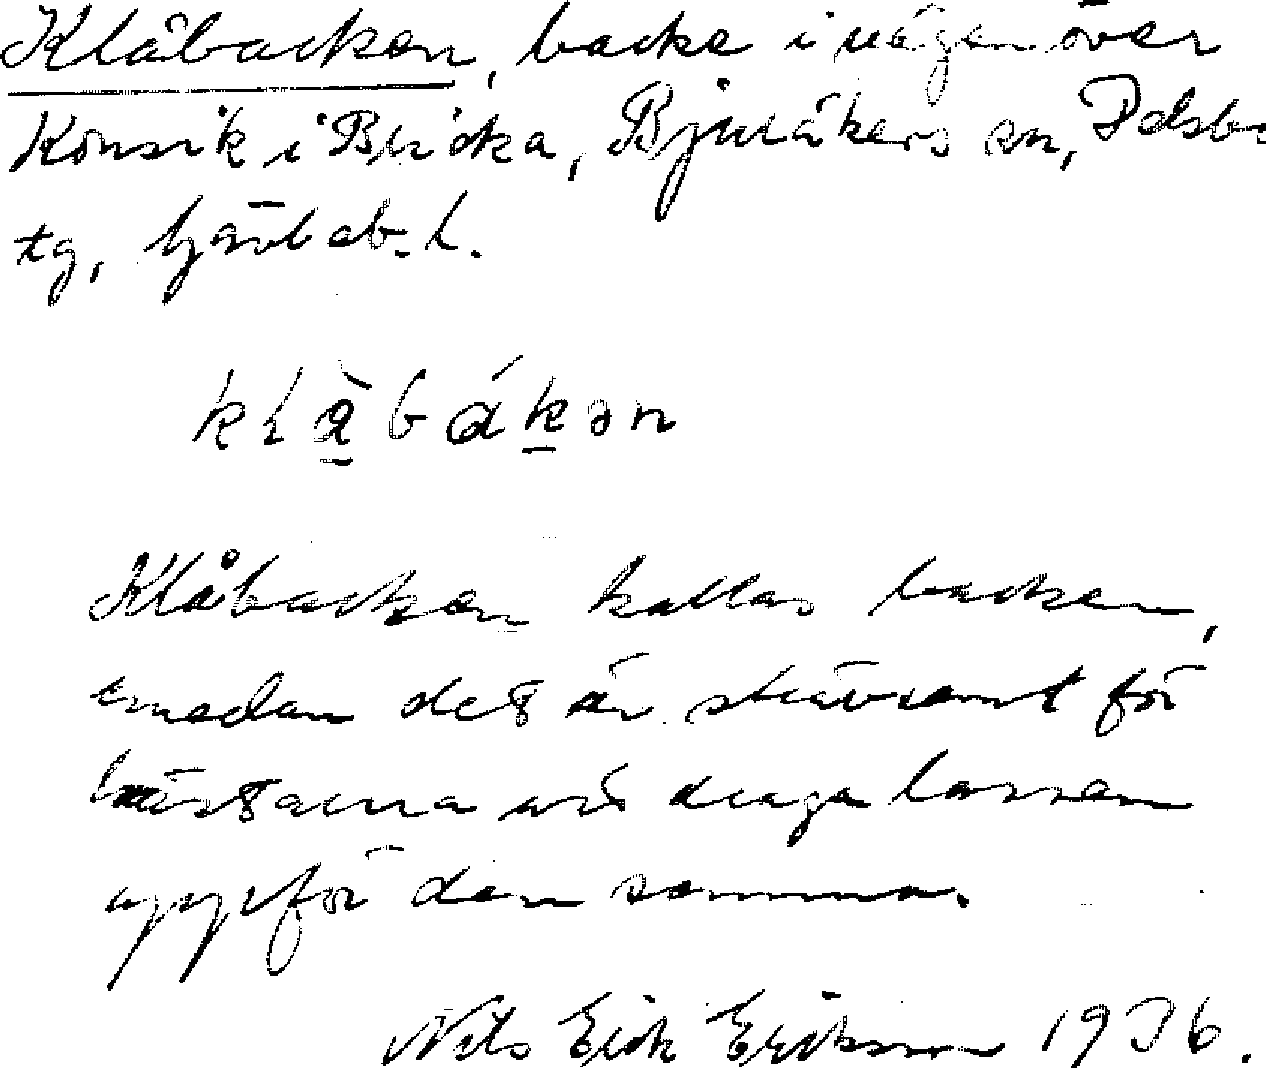 Klåbacken, backe i vägen över
i Bricka, Bjuråkers sn,
tg, Gävleb. l.
Klåbacken kallas backen,
emedan det är strävsamt för
hästarna att draga lassen
uppför den samma.
Nils Erik Eriksson 1936.